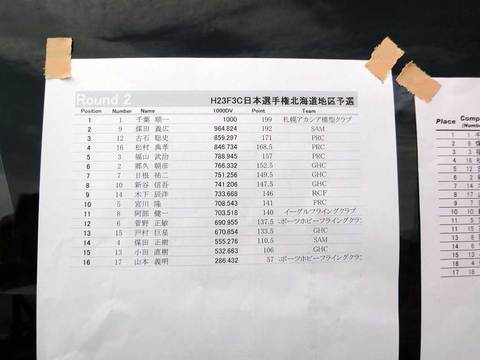 Round 2 H23F3C日本選手権北海道地区予選
Position Number Name 1000DV Point Team
1 1 千葉 順一 1000 199 札幌アカシア模型クラブ
2 9 煤田 義広 964.824 192 SAM
3 12 古石 聡史 859.297 171 PRC
4 16 松村 典孝 846.734 168.5 PRC
5 3 福山 武治 788.945 157 PRC
6 2 郷久 朝彦 766.332 152.5 GHC
7 7 日根 祐二 751.256 149.5 GHC
8 10 新谷 信吾 741.206 147.5 GHC
9 14 木下 辰洋 733.668 146 RCF
10 5 宮川 隆 708.543 141 PRC
11 8 阿部 健一 703.518 140 イーグルフライングクラブ
12 6 菅野 正敏 690.955 137.5 ポーツホビーフライングクラ
13 15 戸村 巨星 670.854 133.5 GHC
14 4 煤田 正樹 555.276 110.5 SAM
15 13 小田 直樹 532.663 106 GHC
16 17 山本 義明 286.432 57 ポーツホビーフライングクラ
Place Comp
(Numb
1
2
3
4
5
6
7
8
9
10
11
12
13
14
15
16
17